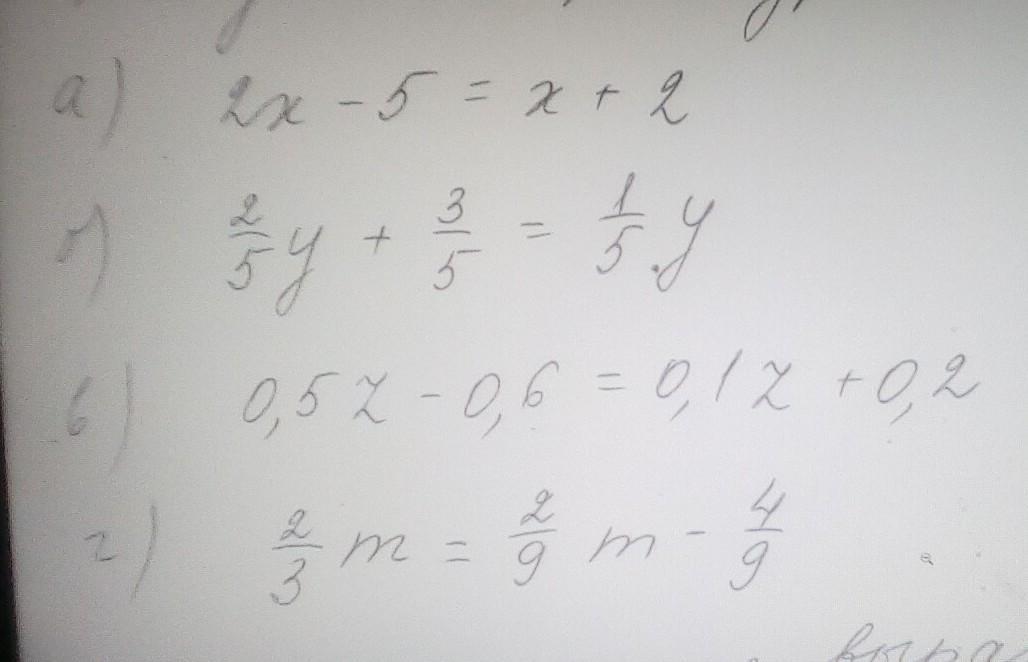 а) 2x - 5 = x + 2
б) 2/5 y + 3/5 = 1/5 y
в) 0,5z - 0,6 = 0,1z + 0,2
г) 2/3 m = 2/9 m - 4/9